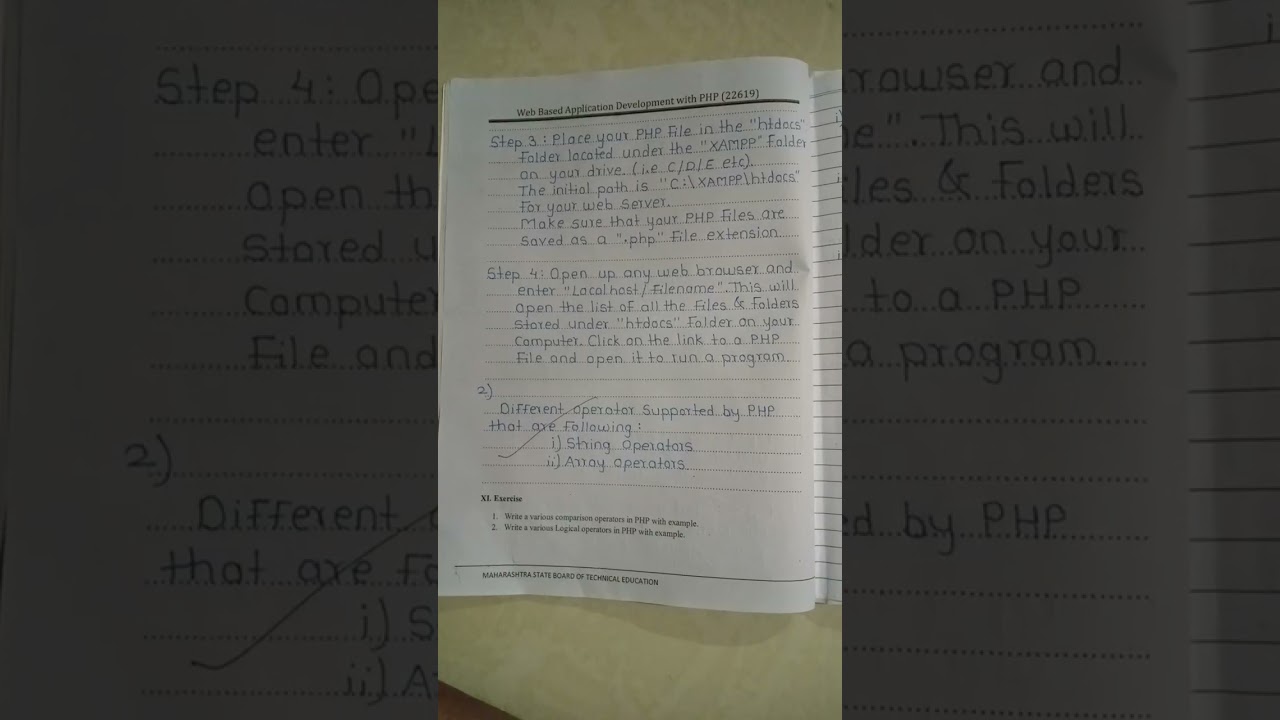 Web Based Application Development with PHP (22619)
Step 3 : Place your PHP File in the "htdocs"
Folder located under the "XAMPP" Folder
on your drive. (i.e C/D/E etc).
The initial path is "C:\XAMPP\htdocs"
For your web server.
Make sure that your PHP Files are
Saved as a ".php" File extension
Step 4: Open up any web browser and
enter "Localhost/Filename". This will
open the list of all the Files & Folders
Stored under "htdocs" Folder on your
Computer. Click on the link to a PHP
File and open it to run a program
2)
Different operator Supported by PHP
that are Following :
i) String Operators
ii) Array operators
XI. Exercise
1. Write a various comparison operators in PHP with example.
2. Write a various Logical operators in PHP with example.
MAHARASHTRA STATE BOARD OF TECHNICAL EDUCATION